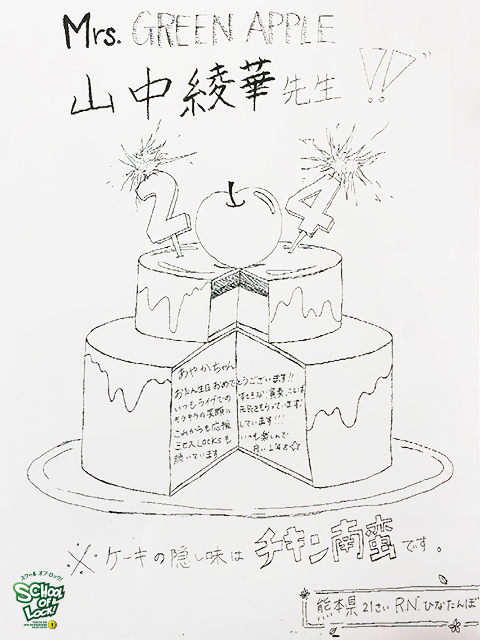 Mrs. GREEN APPLE
山中綾華先生!!
24
あやかちゃん
おたん生日おめでとうございます!!
いつもライブでの
すてきな演奏、ことば
キラキラの笑顔に
元気をもらっています!
これからも応援しています!!!
ミセスLOCKSも
いつも楽しんで
聴いています
※ケーキの隠し味はチキン南蛮です。
スクール オブ ロック!
SCHOOL OF LOCK!
熊本県 21さい RN ひなたんぼ